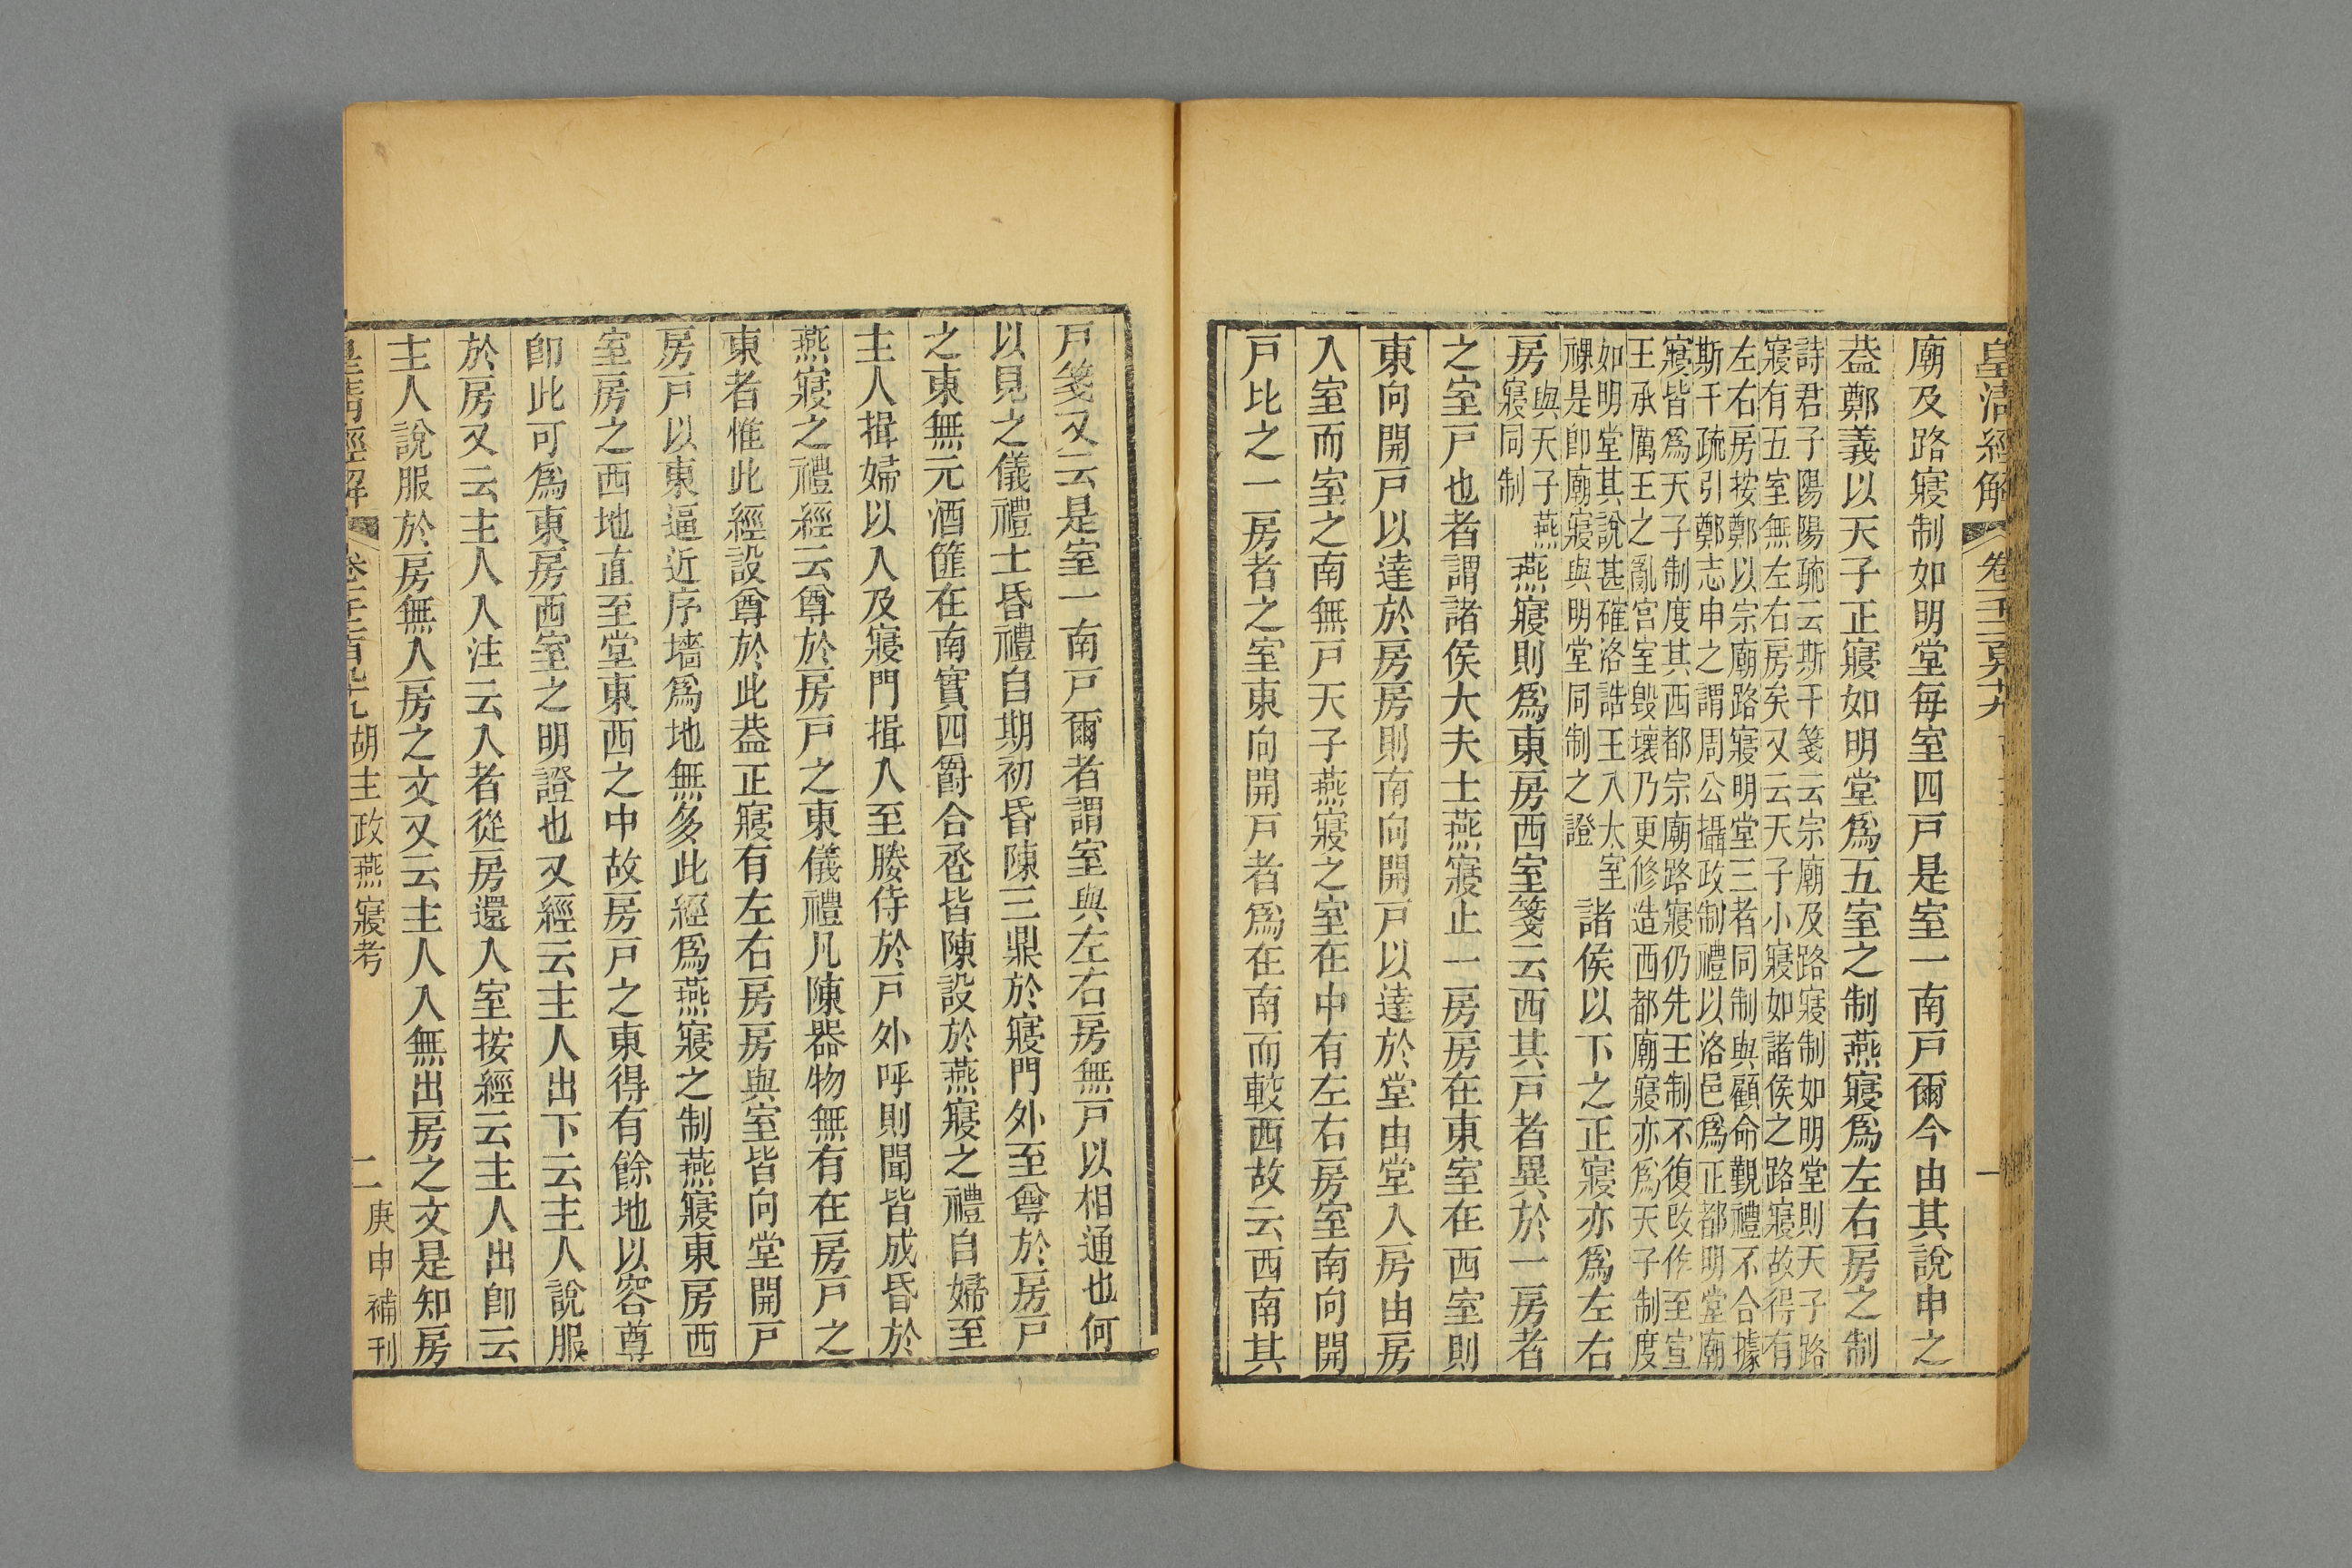 皇清經解
廟及路寢制如明堂每室四戸是室一南戸爾今由其說申之
葢鄭義以天子正寢如明堂爲五室之制燕寢爲左右房之制
詩君子陽陽疏云斯干箋云宗廟及路寢制如明堂則天子路
寢有五室無左右房矣又云天子小寢如諸侯之路寢故得有
左右房按鄭以宗廟路寢明堂三者同制與顧命覲禮不合據
斯干疏引鄭志申之謂周公攝政制禮以洛邑爲正都明堂廟
寢皆爲天子制度其西都宗廟路寢仍先王制不復改作至宣
王承厲王之亂宮室毀壞乃更修造西都廟寢亦爲天子制度
如明堂其說甚確洛誥王入太室
祼是卽廟寢與明堂同制之證
諸侯以下之正寢亦爲左右
房
與天子燕
寢同制
燕寢則爲東房西室箋云西其戸者異於一房者
之室戸也者謂諸侯大夫士燕寢止一房房在東室在西室則
東向開戸以達於房房則南向開戸以達於堂由堂入房由房
入室而室之南無戸天子燕寢之室在中有左右房室南向開
戸比之一房者之室東向開戸者爲在南而較西故云西南其
戸箋又云是室一南戸爾者謂室與左右房無戸以相通也何
以見之儀禮士昏禮自期初昏陳三鼎於寢門外至尊於房戸
之東無元酒篚在南實四爵合卺皆陳設於燕寢之禮自婦至
主人揖婦以入及寢門揖入至媵侍於戸外呼則聞皆成昏於
燕寢之禮經云尊於房戸之東儀禮凡陳器物無有在房戸之
東者惟此經設尊於此葢正寢有左右房房與室皆向堂開戸
房戸以東逼近序墻爲地無多此經爲燕寢之制燕寢東房西
室房之西地直至堂東西之中故房戸之東得有餘地以容尊
卽此可爲東房西室之明證也又經云主人出下云主人說服
於房又云主人入注云入者從房還入室按經云主人出卽云
主人說服於房無入房之文又云主人入無出房之文是知房
皇清經解 胡主政燕寢考 二 庚申補刊